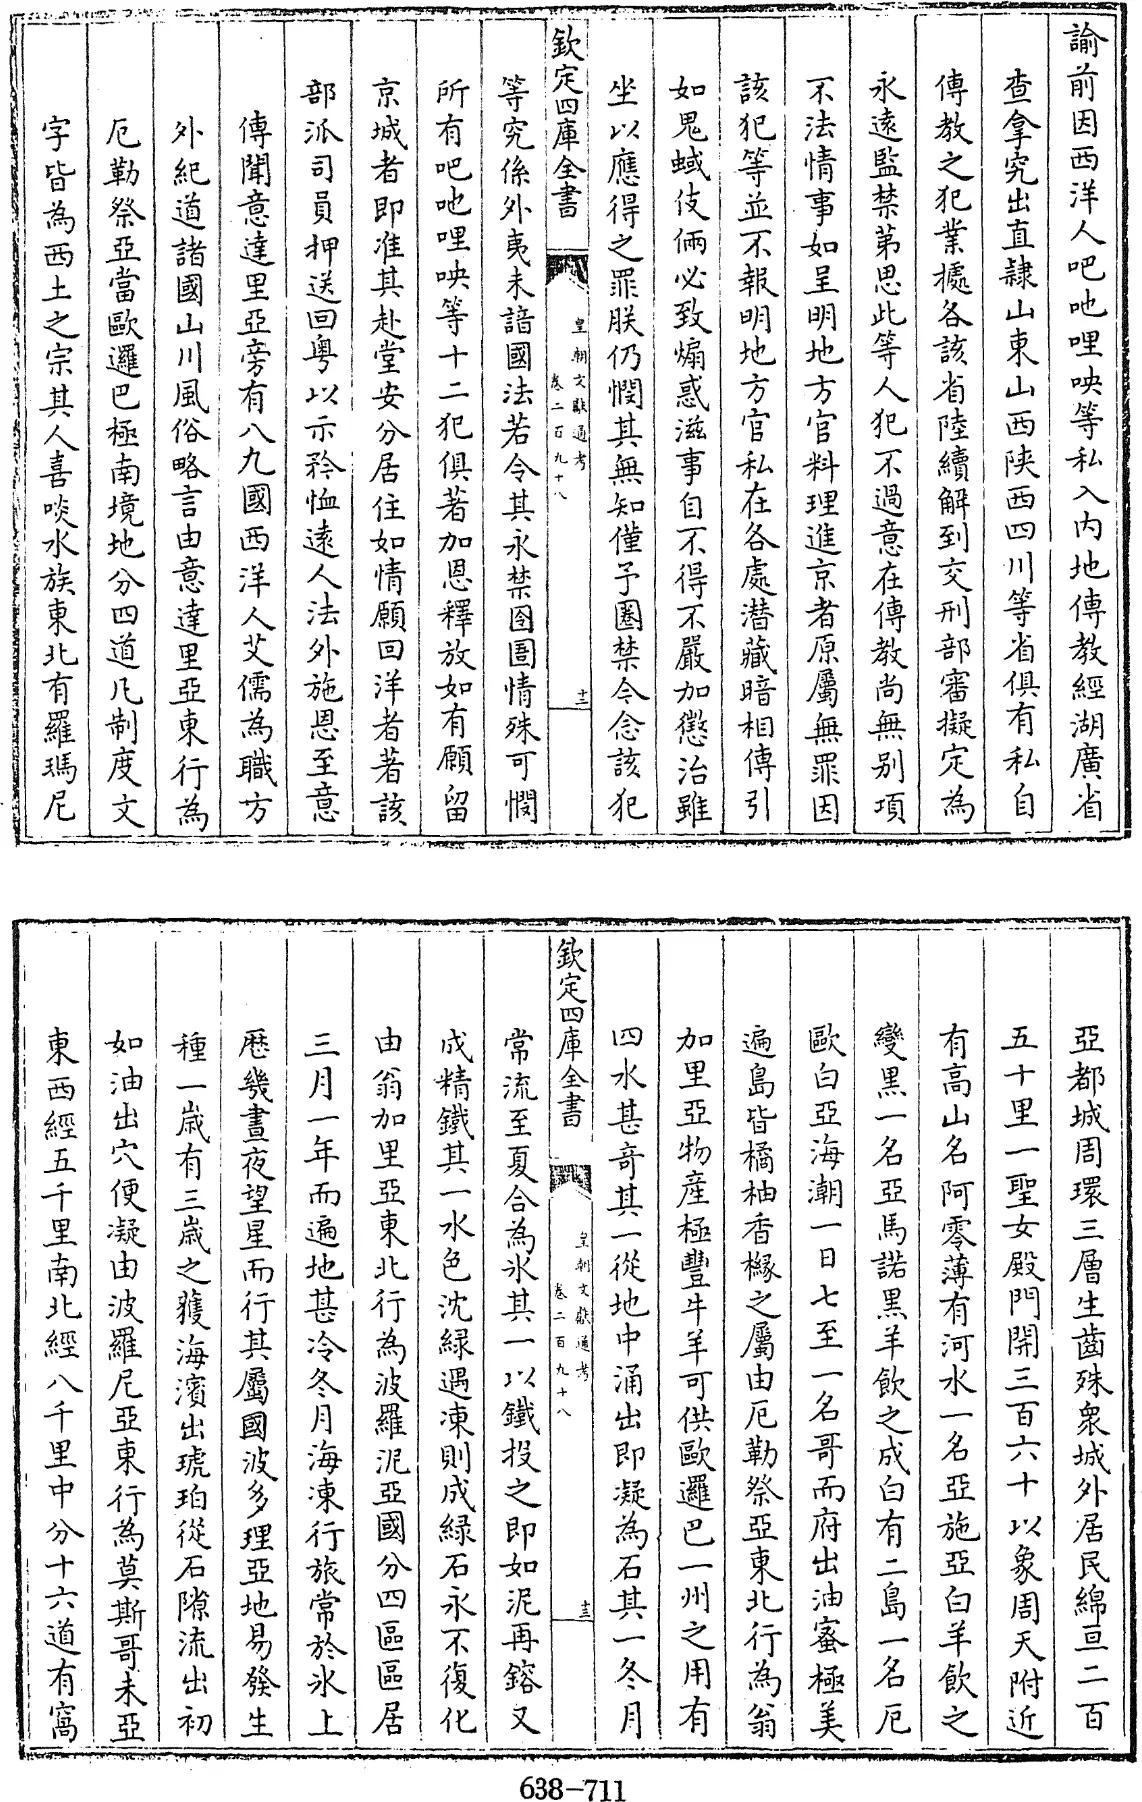 諭前因西洋人吧吔哩㖤等私入内地傳教經湖廣省
查拿究出直隸山東山西陜西四川等省俱有私自
傳教之犯業據各該省陸續解到交刑部審擬定為
永遠監禁第思此等人犯不過意在傳教尚無别項
不法情事如呈明地方官料理進京者原屬無罪因
該犯等並不報明地方官私在各處潜藏暗相傳引
如鬼蜮伎倆必致煽惑滋事自不得不嚴加懲治雖
坐以應得之罪朕仍憫其無知僅予圈禁今念該犯
欽定四庫全書
皇朝文獻通考
卷二百九十八
十二
等究係外夷未諳國法若令其永禁囹圄情殊可憫
所有吧吔哩㖤等十二犯俱著加恩釋放如有願留
京城者即准其赴堂安分居住如情願回洋者著該
部派司員押送回粤以示矜恤遠人法外施恩至意
傳聞意達里亞旁有八九國西洋人艾儒為職方
外紀道諸國山川風俗略言由意達里亞東行為
厄勒祭亞當歐邏巴極南境地分四道凡制度文
字皆為西土之宗其人喜啖水族東北有羅瑪尼
亞都城周環三層生齒殊衆城外居民綿亘二百
五十里一聖女殿門開三百六十以象周天附近
有高山名阿零薄有河水一名亞施亞白羊飲之
變黑一名亞馬諾黑羊飲之成白有二島一名厄
歐白亞海潮一日七至一名哥而府出油蜜極美
遍島皆橘柚香櫞之屬由厄勒祭亞東北行為翁
加里亞物産極豐牛羊可供歐邏巴一州之用有
四水甚奇其一從地中涌出即凝為石其一冬月
欽定四庫全書
皇朝文獻通考
卷二百九十八
十三
常流至夏合為氷其一以鐵投之即如泥再鎔又
成精鐵其一水色沈緑遇凍則成緑石永不復化
由翁加里亞東北行為波羅泥亞國分四區區居
三月一年而遍地甚冷冬月海凍行旅常於氷上
厯幾晝夜望星而行其屬國波多理亞地易發生
種一歲有三歲之穫海濱出琥珀從石隙流出初
如油出穴便凝由波羅尼亞東行為莫斯哥未亞
東西經五千里南北經八千里中分十六道有窩
638-711